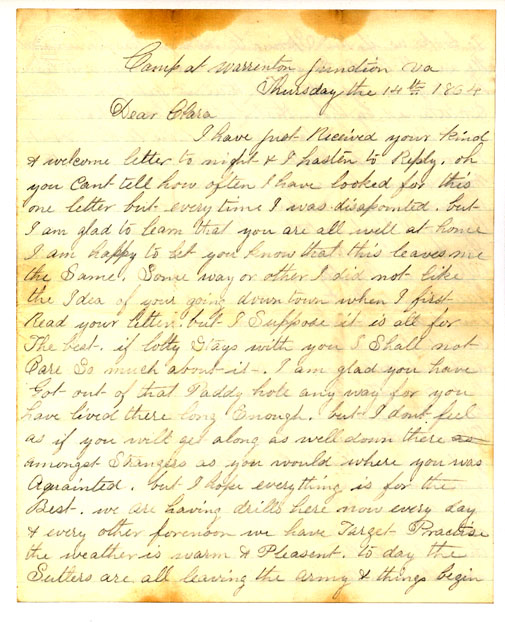 Camp at Warrenton Junction Va
Thursday the 14th 1864
Dear Clara
I have just Received your Kind
& welcome letter to night & I hasten to Reply. oh
you Cant tell how often I have looked for this
one letter but every time I was disapointed. but
I am glad to learn that you are all well at home
I am happy to let you know that this leaves me
the Same. Some way or other I did not like
the Idea of your going down town when I first
Read your letter. but I Suppose it is all for
The best. if Lotty Stays with you I Shall not
Care So much about it. I am glad you have
Got out of that Paddy hole any way for you
have lived there long Enough. but I dont feel
as if you will get along as well down there as
amongst Strangers as you would where you was
Aquainted. but I hope everything is for the
Best. we are having drills here now every day
& every other forenoon we have Target Practise
the weather is warm & Pleasent. to day the
Sutlers are all leaving the Army & things begin